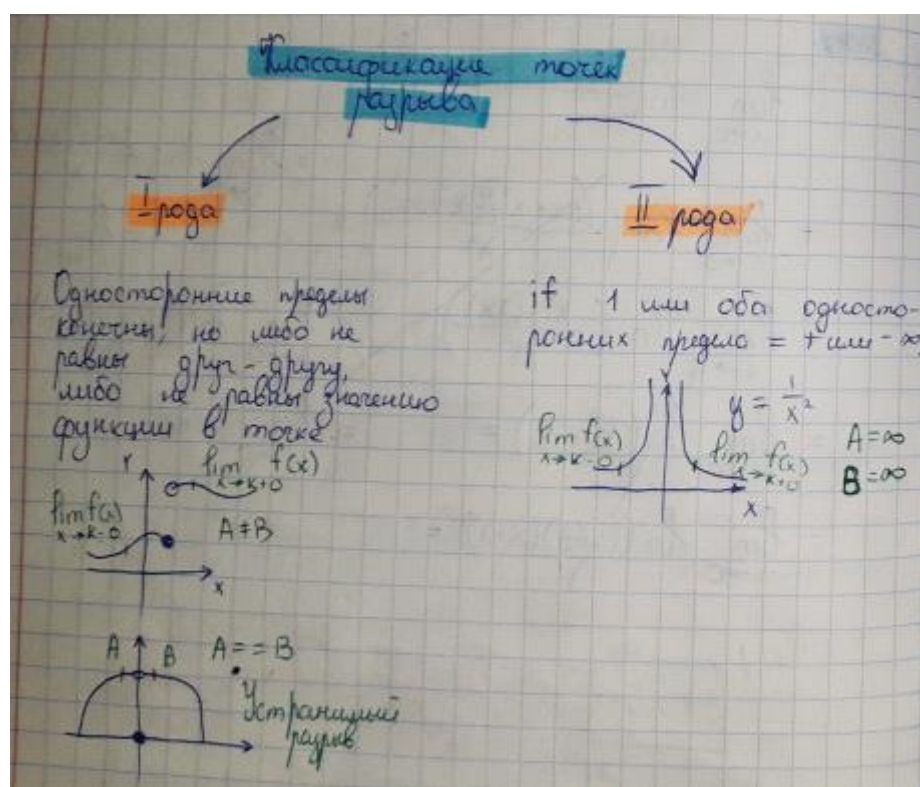 Классификация точек
разрыва
I рода
Односторонние пределы
конечны, но либо не
равны друг-другу,
либо не равны значению
функции в точке
Y
lim f(x)
x→k+0
lim f(x)
x→k-0
A ≠ B
x
A B A = = B
Устранимый
разрыв
II рода
if 1 или оба односто-
ронних предела = + или - ∞
Y
y = 1/x²
lim f(x)
x→k-0
lim f(x)
x→k+0
A = ∞
B = ∞
X